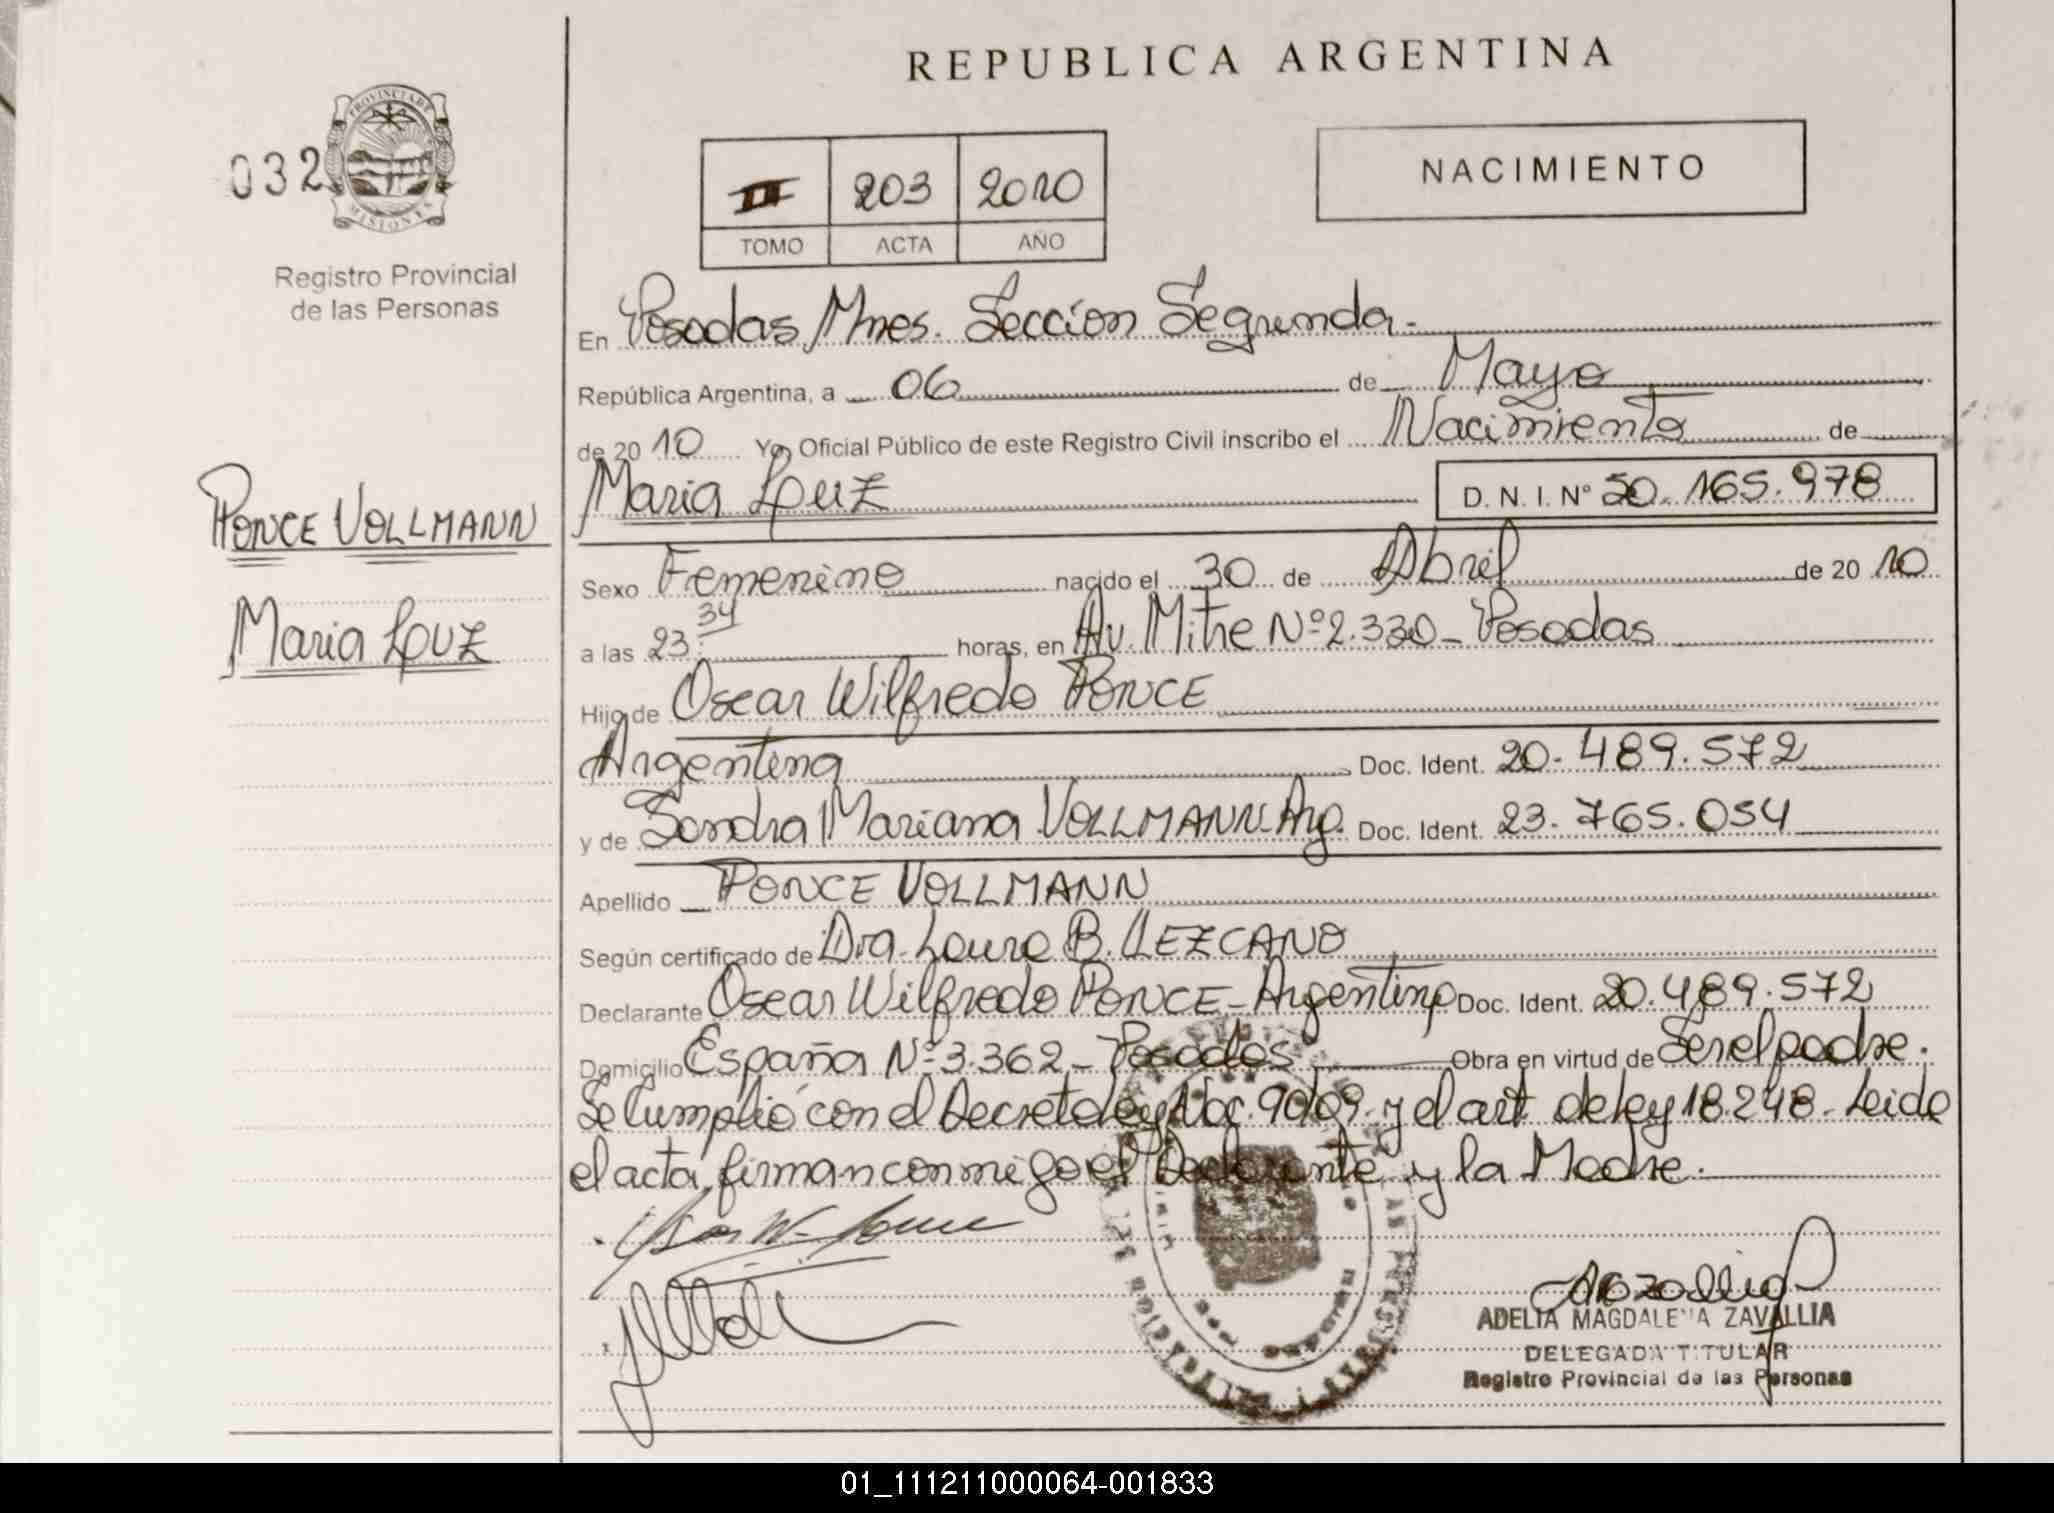 REPUBLICA ARGENTINA
032
PROVINCIA DE
MISIONES
Registro Provincial
de las Personas
II 203 2010
TOMO ACTA AÑO
NACIMIENTO
PONCE VOLLMANN
Maria Luz
En Posadas Mnes. Sección Segunda.-
República Argentina, a 06 de Mayo
de 2010 Yo, Oficial Público de este Registro Civil inscribo el Nacimiento de
Maria Luz D. N. I. Nº 50.165.978
Sexo Femenino nacido el 30 de Abril de 2010
a las 23:34 horas, en Av. Mitre Nº 2.330 - Posadas
Hijo de Oscar Wilfredo PONCE
Argentina Doc. Ident. 20.489.572
y de Sandra Mariana VOLLMANN-Arg. Doc. Ident. 23.765.054
Apellido PONCE VOLLMANN
Según certificado de Dra. Laura B. LEZCANO
Declarante Oscar Wilfredo PONCE - Argentino Doc. Ident. 20.489.572
Domicilio España Nº 3.362 - Posadas Obra en virtud de Ser el padre.
Se Cumplió con el Decreto Ley Nac. 9009 y el art de ley 18.248 - Leida
el acta, firman conmigo el Declarante y la Madre.
ADELIA MAGDALENA ZAVALLIA
DELEGADA TITULAR
Registro Provincial de las Personas
01_111211000064-001833